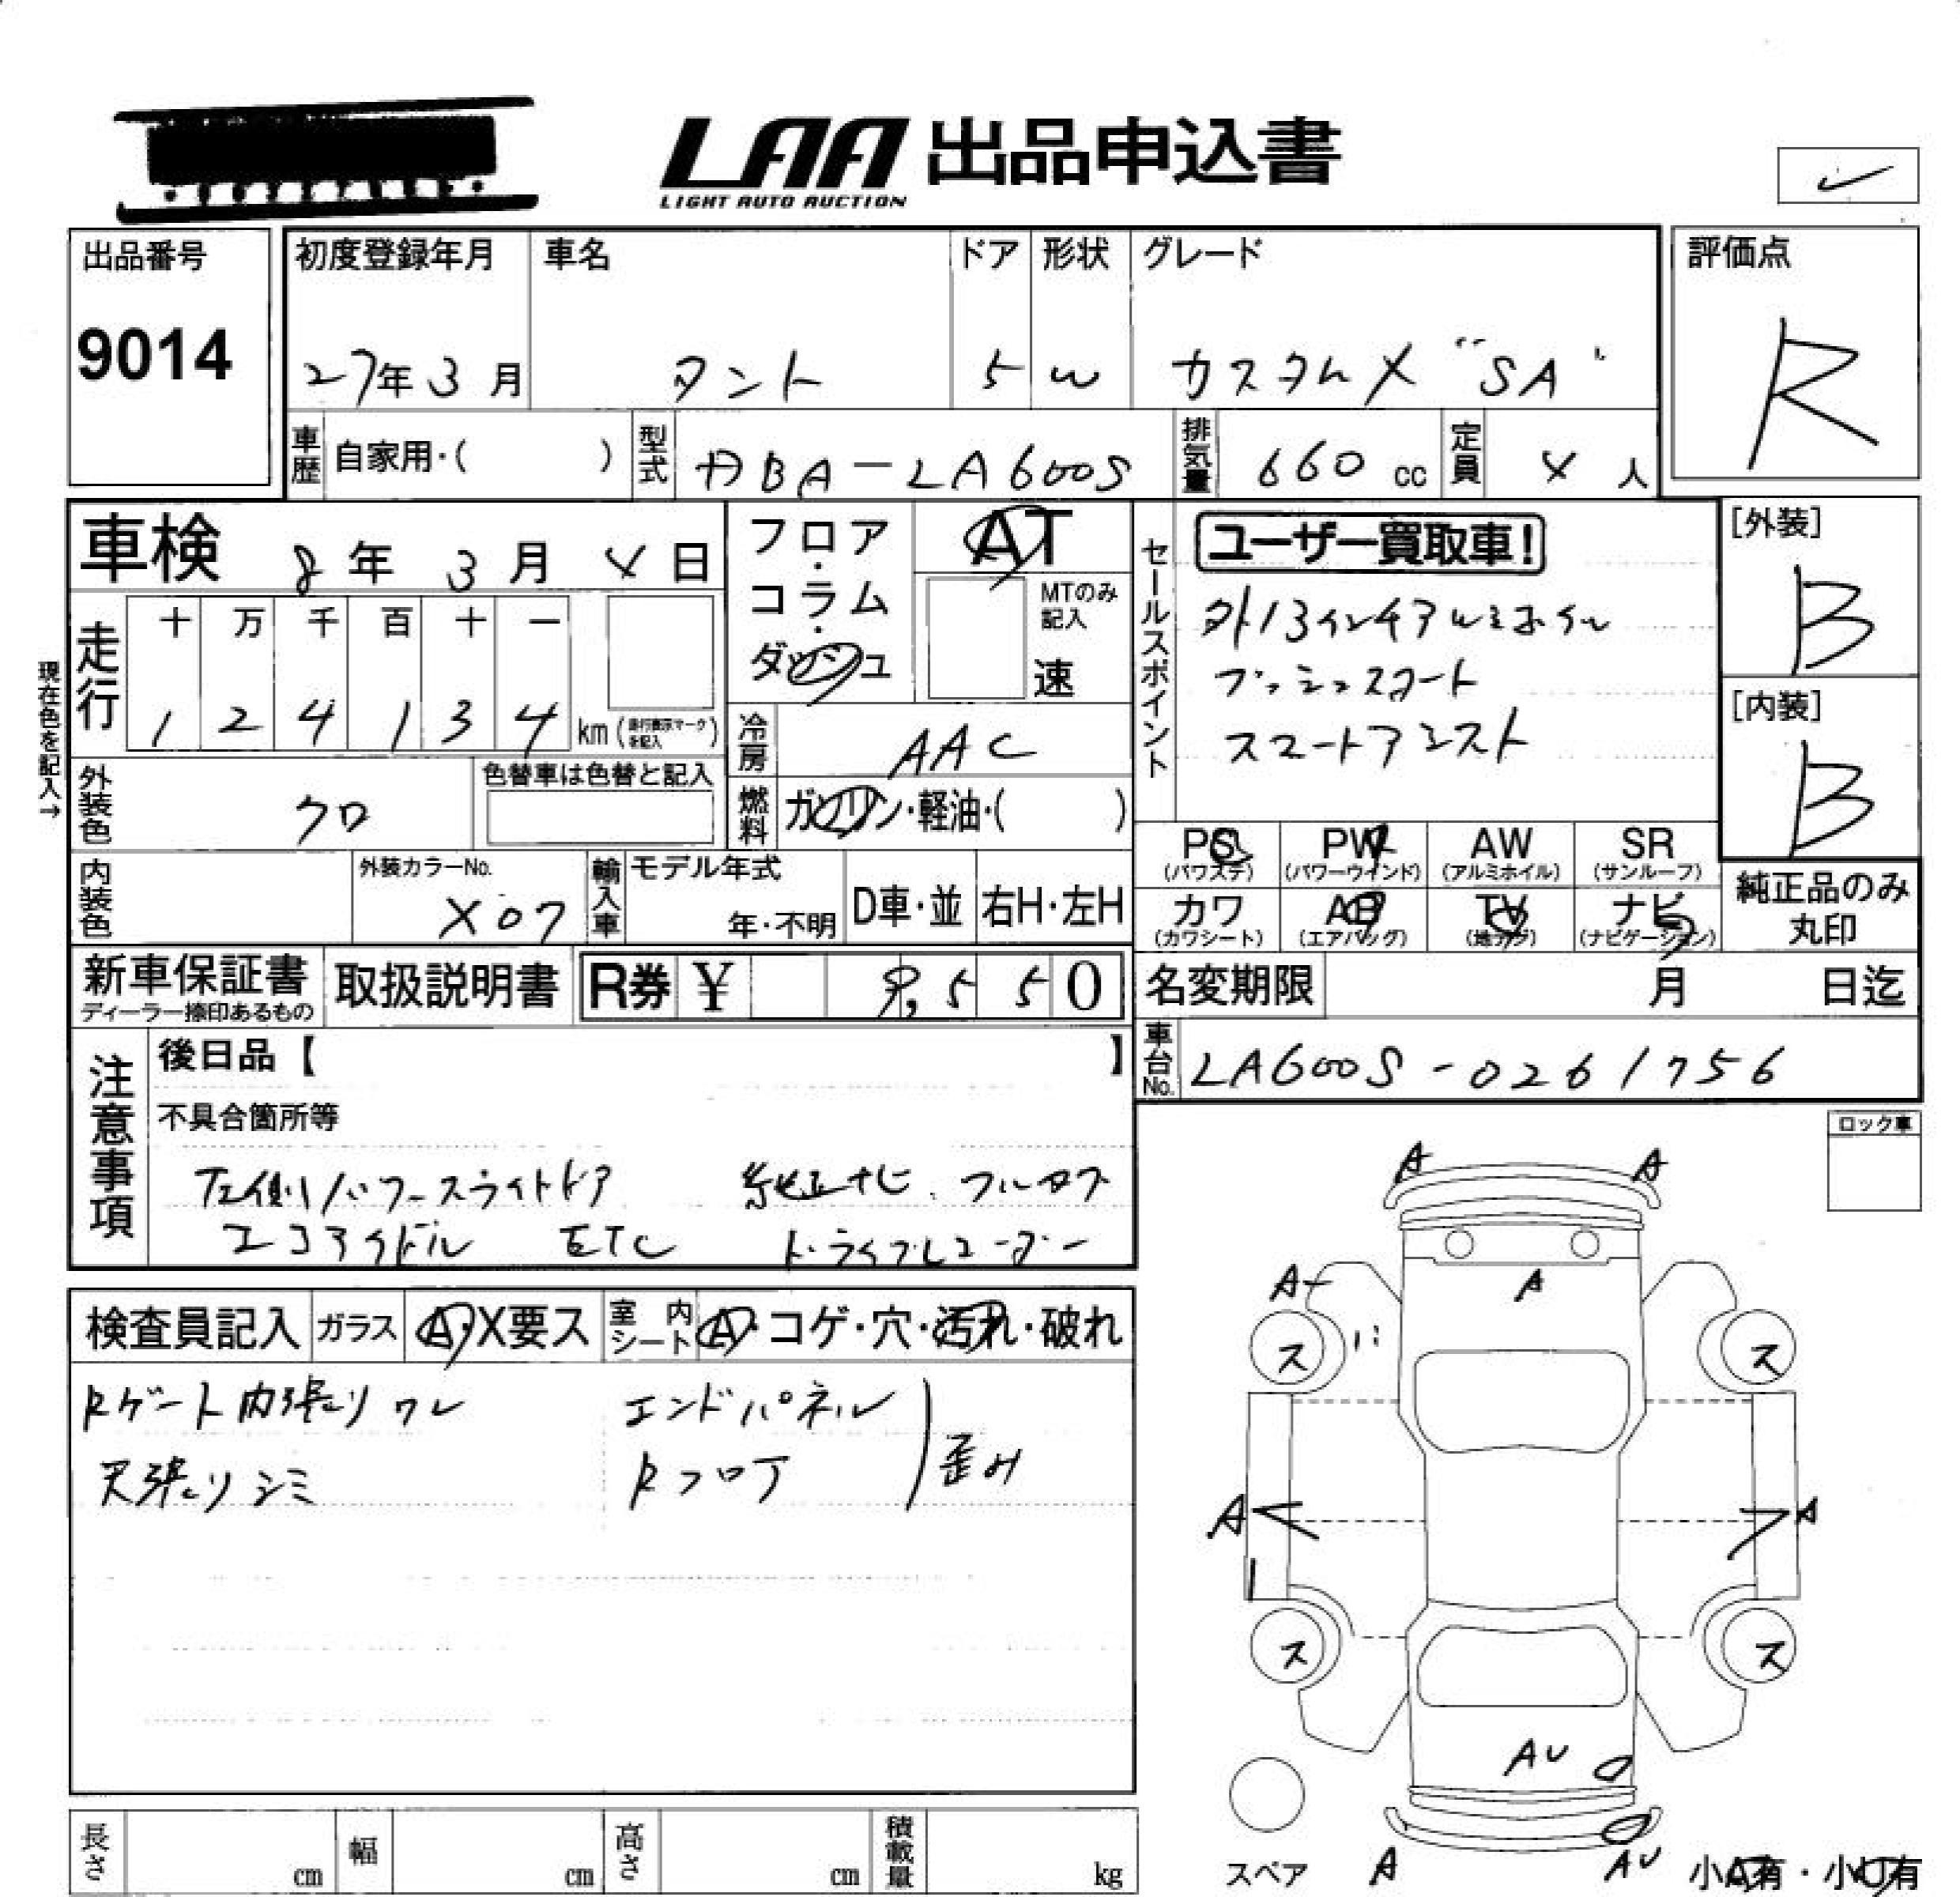 LAA 出品申込書
LIGHT AUTO AUCTION
✓
出品番号
9014
初度登録年月
27年3月
車名
タント
ドア
5
形状
W
グレード
カスタムX "SA"
評価点
R
車歴
自家用・( )
型式
DBA-LA600S
排気量
660 cc
定員
4 人
車検 8年3月4日
走行
十 万 千 百 十 一
1 2 4 1 3 4 km (走行表示マークを記入)
現在色を記入→
外装色
クロ
色替車は色替と記入
内装色
外装カラーNo.
X07
フロア・コラム・ダッシュ
AT
MTのみ記入
速
冷房
AAC
燃料
ガソリン・軽油・( )
輸入車
モデル年式
年・不明
D車・並
右H・左H
セールスポイント
ユーザー買取車!
外13インチアルミホイル
プッシュスタート
スマートアシスト
[外装]
B
[内装]
B
PS (パワステ)
PW (パワーウインド)
AW (アルミホイル)
SR (サンルーフ)
カワ (カワシート)
AB (エアバッグ)
TV (地デジ)
ナビ (ナビゲーション)
純正品のみ丸印
新車保証書
ディーラー捺印あるもの
取扱説明書
R券 ¥ 9,550
名変期限 月 日迄
車台No.
LA600S-0261756
注意事項
後日品【 】
不具合箇所等
左側パワースライドドア 純正ナビ. フルセグ
エコアイドル ETC ドライブレコーダー
ロック車
検査員記入
ガラス
A・X要ス
室内シート
A・コゲ・穴・汚れ・破れ
Rゲート内張りワレ エンドパネル
天張りシミ Rフロア 歪み
A A
A A
ス ス
A A
ス ス
AU
A AU
スペア
小A有・小U有
長さ cm
幅 cm
高さ cm
積載量 kg